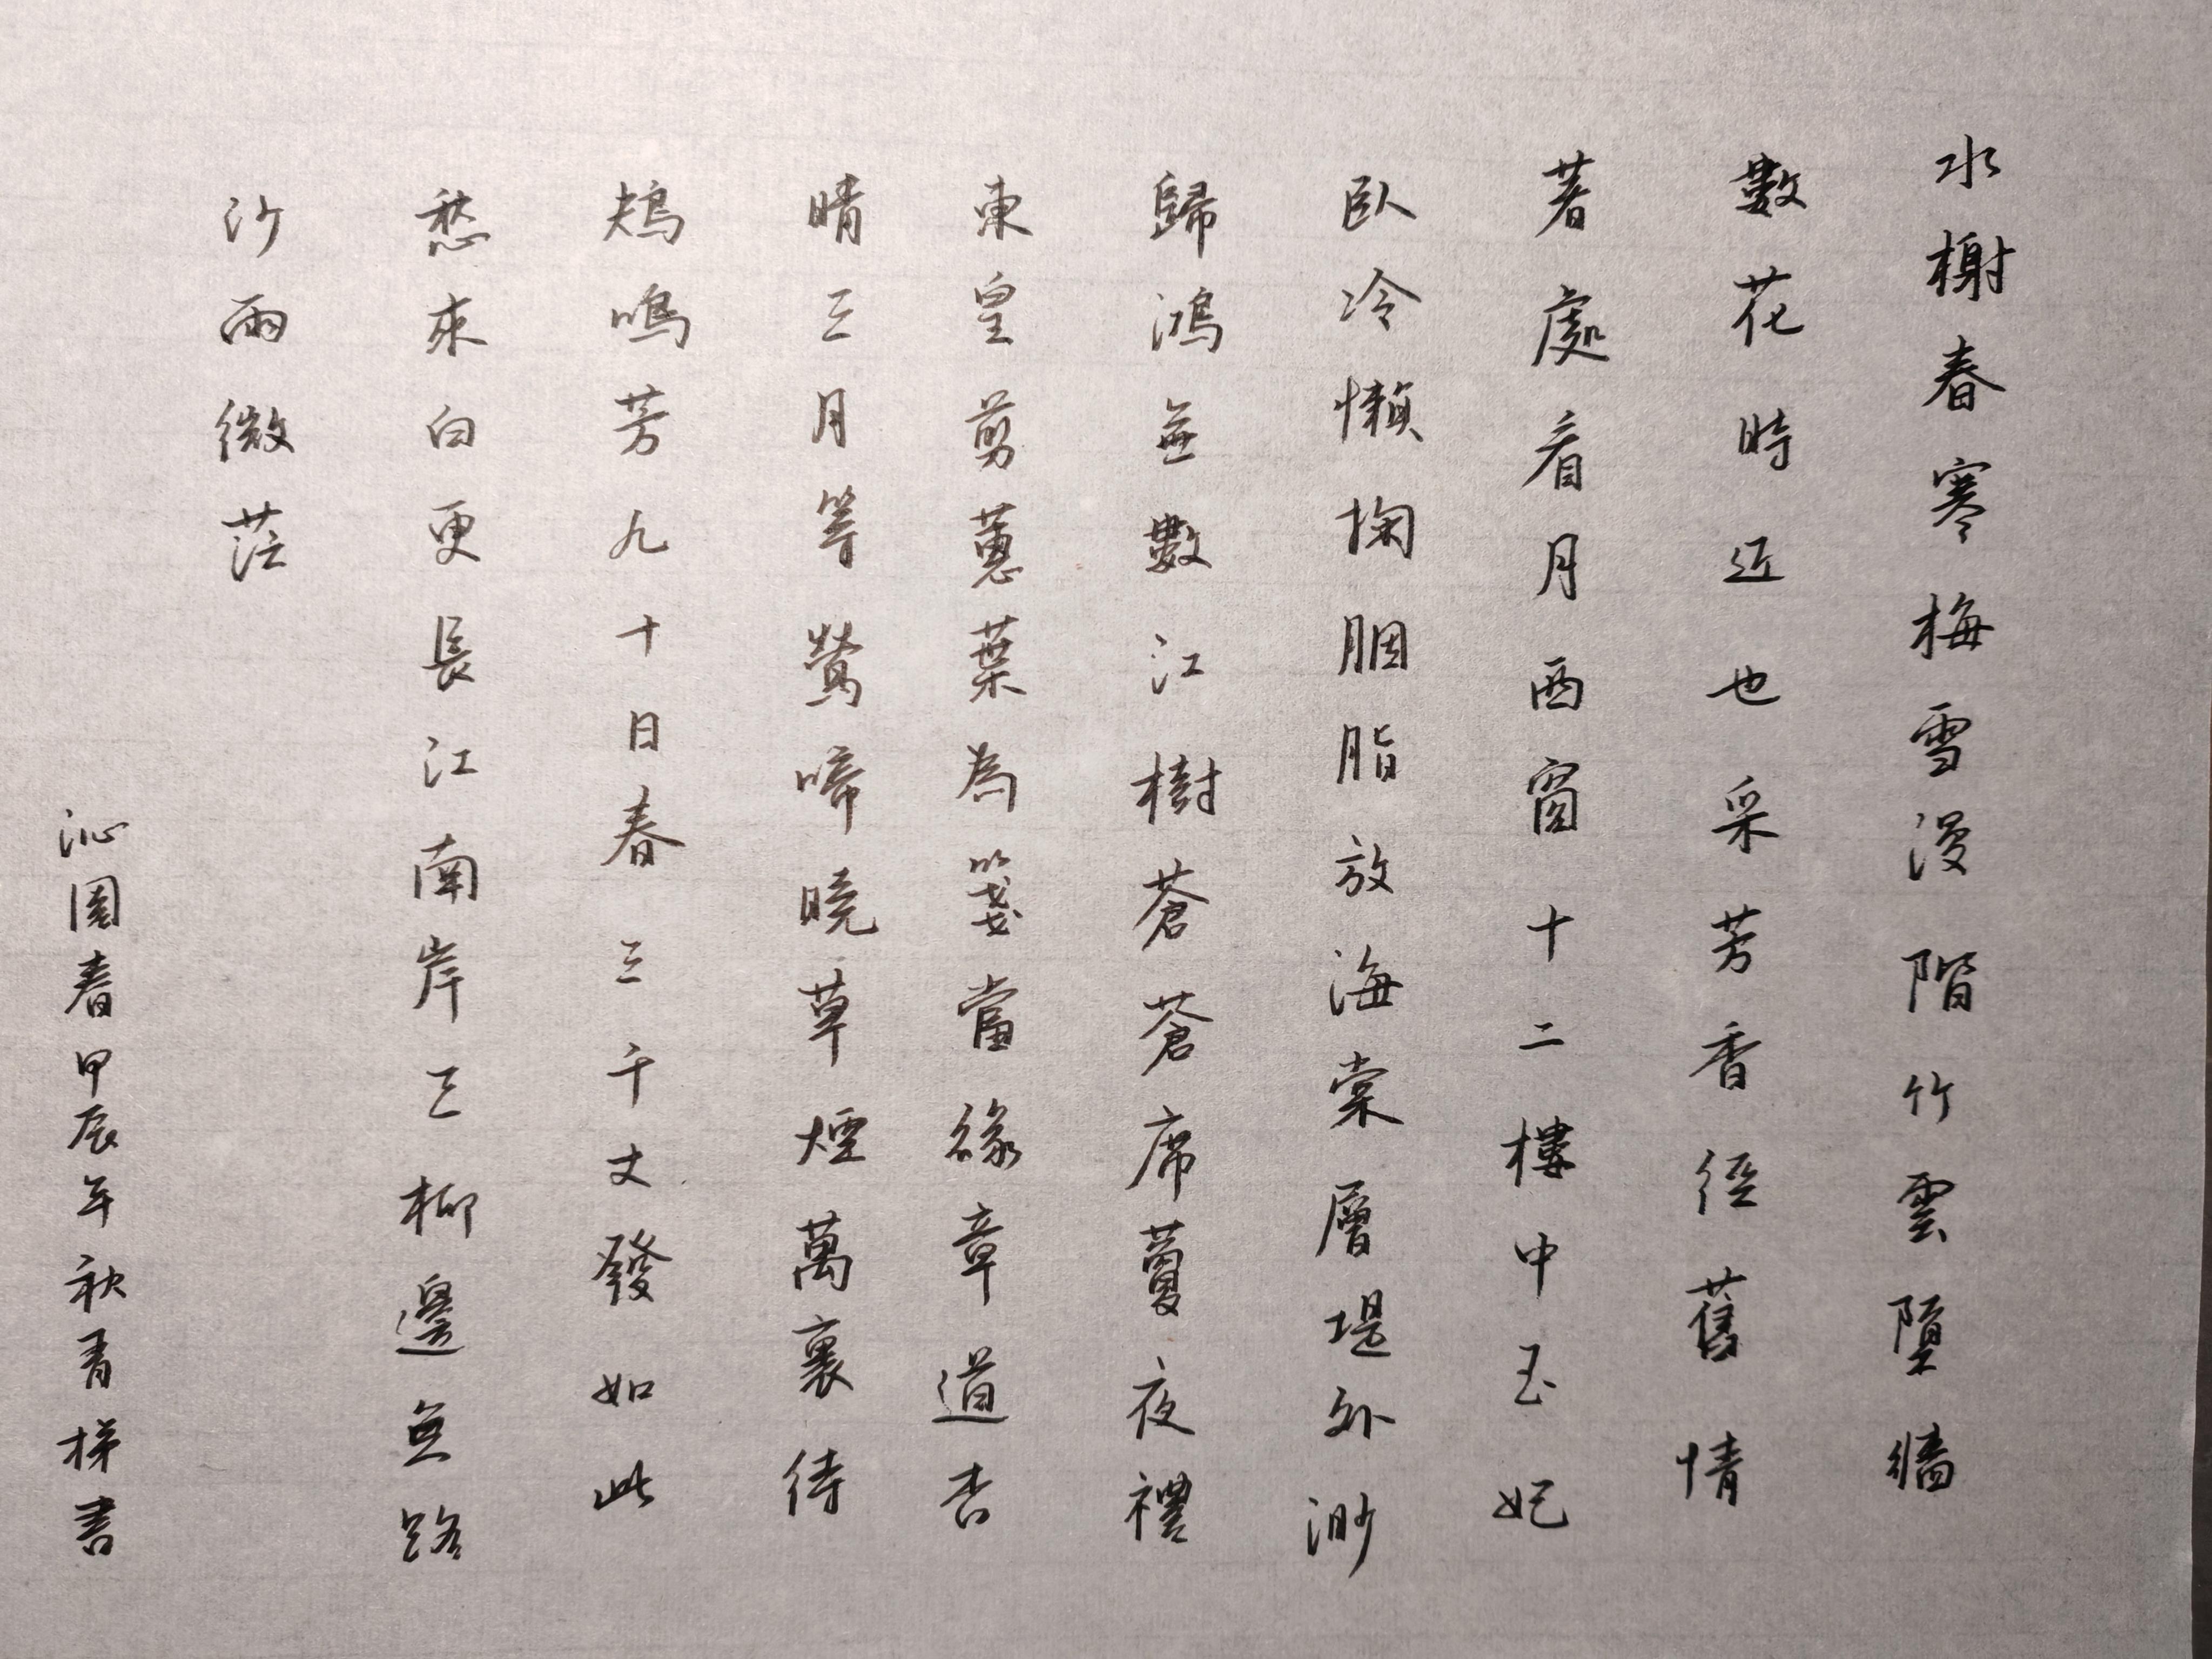 水榭春寒梅雪漫階竹雲墮牆
數花時近也采芳香徑舊情
著處看月西窗十二樓中玉妃
臥冷懶掬胭脂放海棠層堤外渺
歸鴻無數江樹蒼蒼席蔓夜禮
東皇剪蕙葉為箋當綠章道杏
晴三月等鶯啼曉草煙萬裏待
鴂鳴芳九十日春三千丈發如此
愁來白更長江南岸三柳邊無路
沙雨微茫
沁園春甲辰年秋青梯書